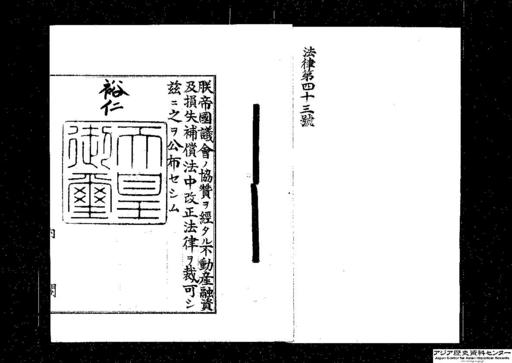 法律第四十三號
朕帝國議會ノ協贊ヲ經タル不動產融資
及損失補償法中改正法律ヲ裁可シ
茲ニ之ヲ公布セシム
裕仁
天皇
御璽
內
閣
アジア歴史資料センター
Japan Center for Asian Historical Records